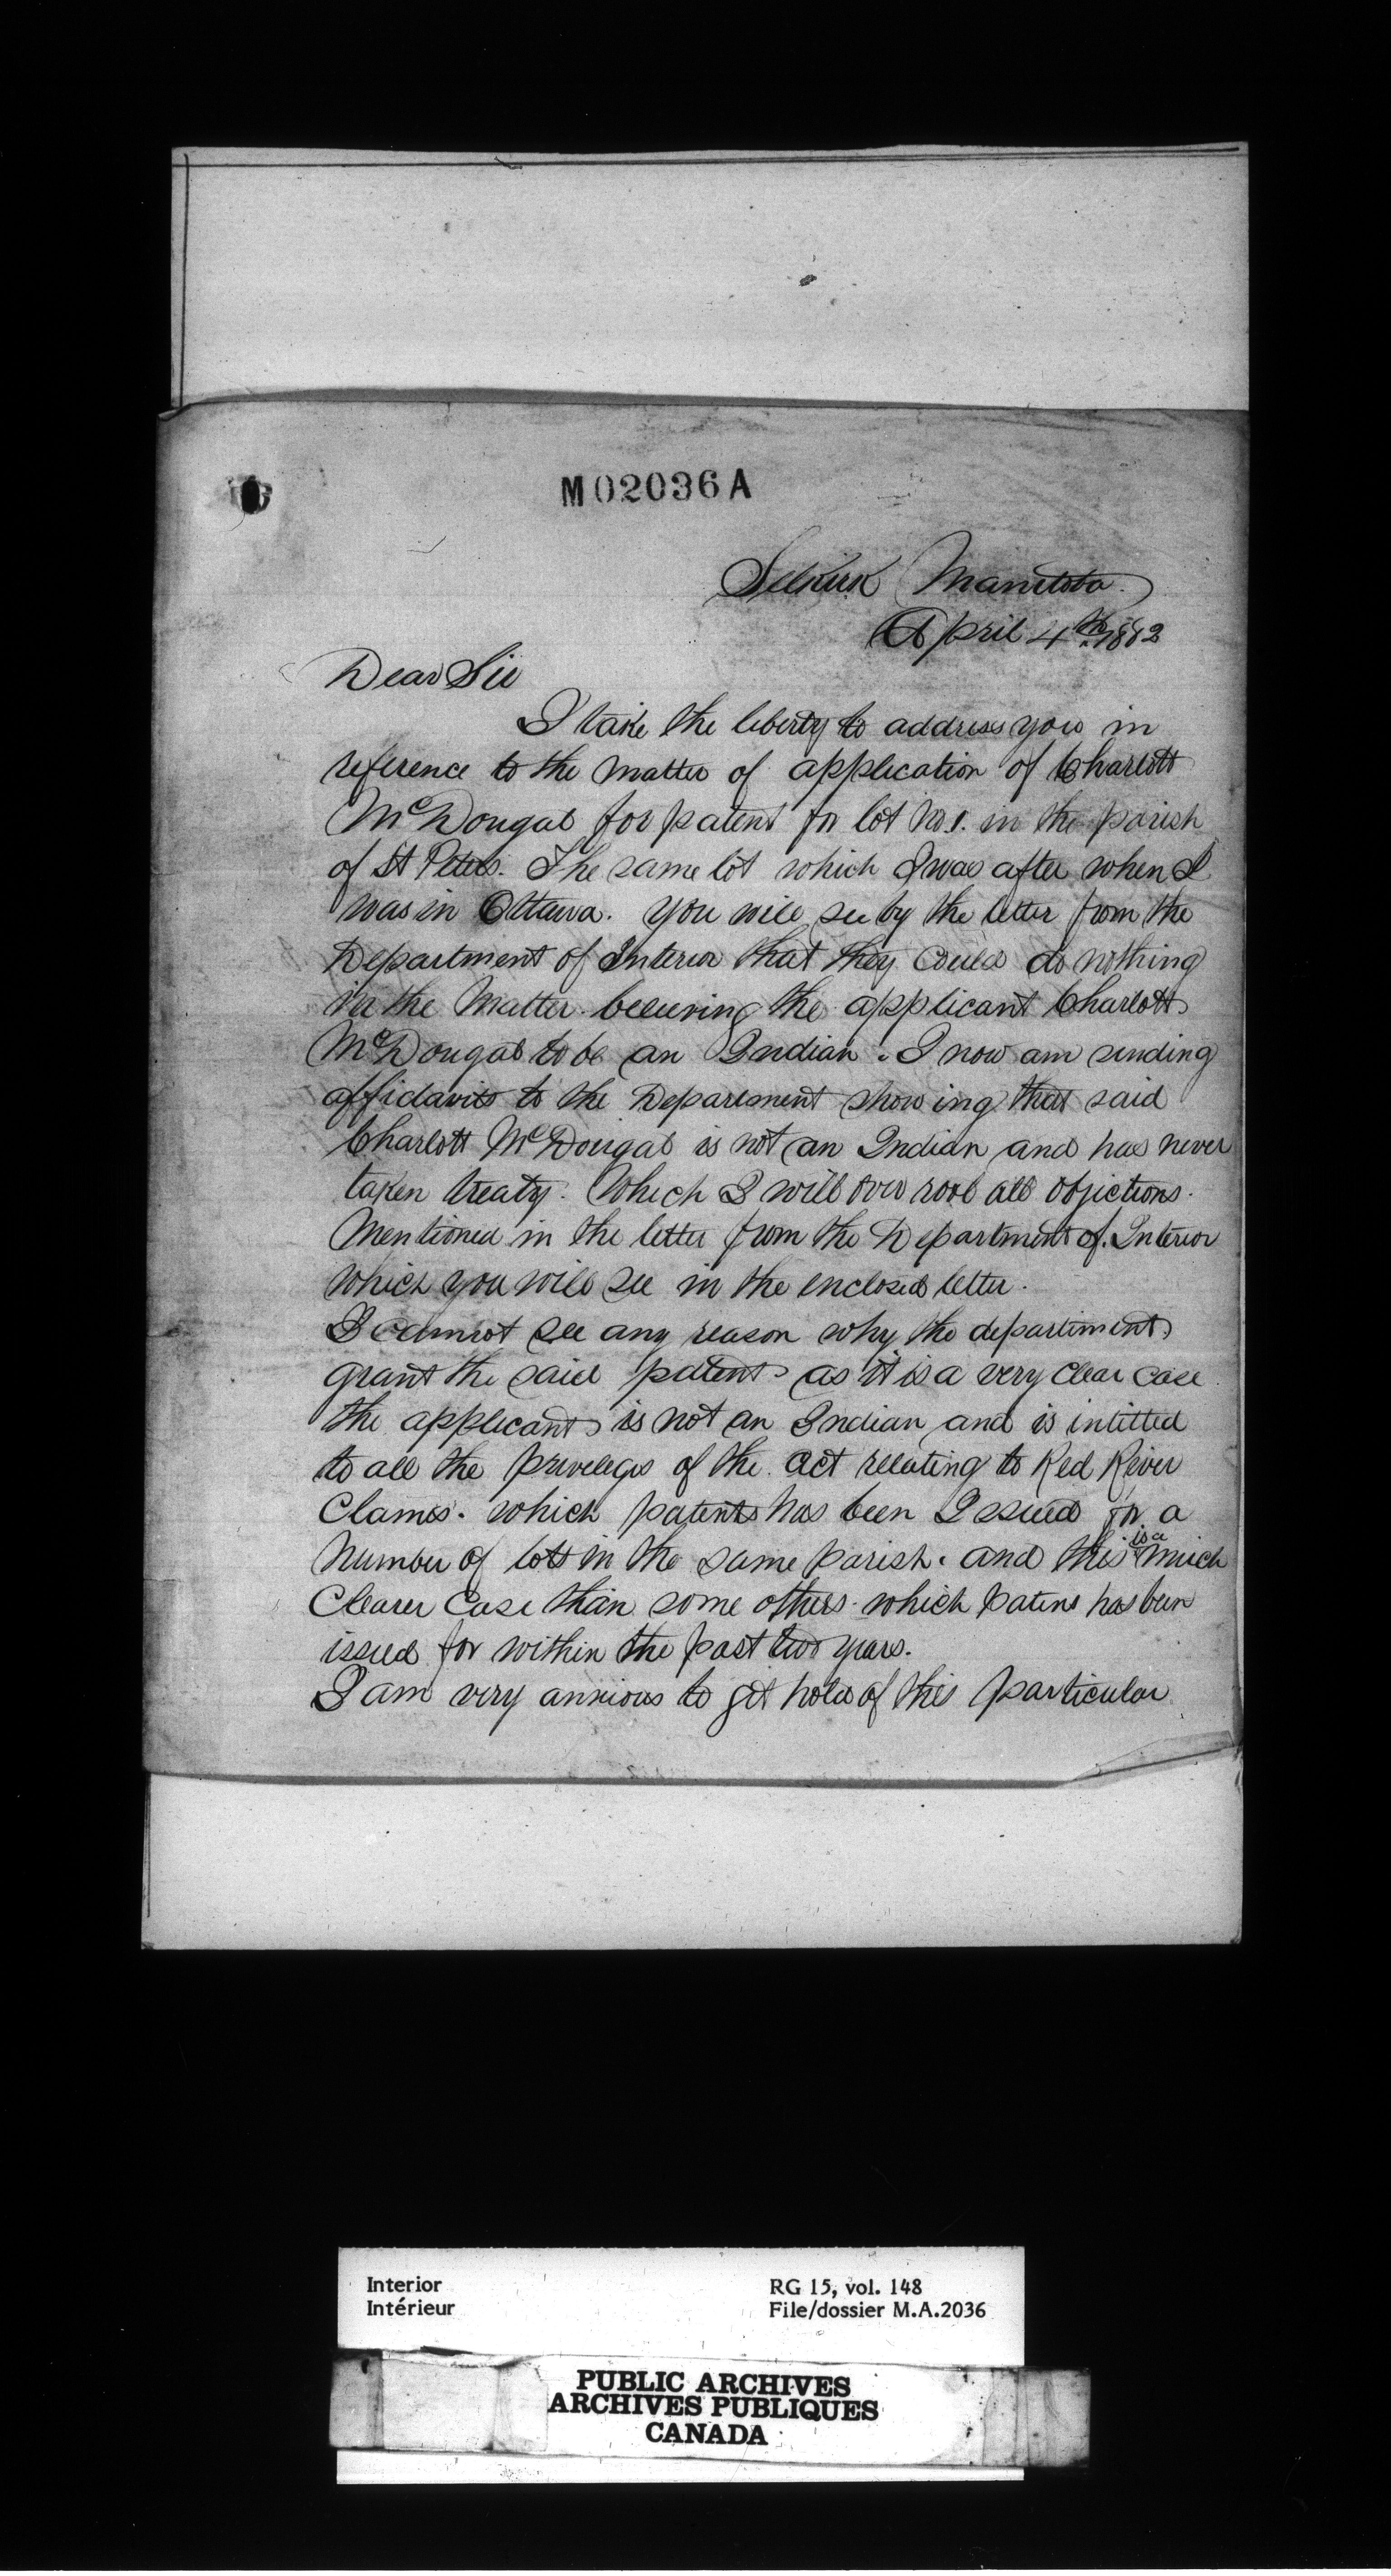 M02036A
Selkirk Manitoba.
April 4th 1882
Dear Sir
I take the liberty to address you in
reference to the matter of application of Charlott
McDougal for patent for lot No. 1. in the parish
of St Peters. The same lot which I was after when I
was in Ottawa. you will see by the letter from the
Department of Interior that they could do nothing
in the matter. the applicant Charlott
McDougal to be an Indian. I now am sending
affidavits to the Department showing that said
Charlott McDougal is not an Indian and has never
taken treaty. Which I will over all objections.
Mentioned in the letter from the Department of. Interior
which you will see in the enclosed letter.
I cannot see any reason why the department
grant the said patent as it is a very clear case
the applicant is not an Indian and is intitled
to all the of the act relating to Red River
Clames. which patents has been Issued for a
Number of lots in the same parish. and this is a much
Clearer Case than some others. which patens has been
issued for within the past two years.
I am very anxious to get hold of this particular
Interior
Intérieur
RG 15, vol. 148
File/dossier M.A.2036
PUBLIC ARCHIVES
ARCHIVES PUBLIQUES
CANADA